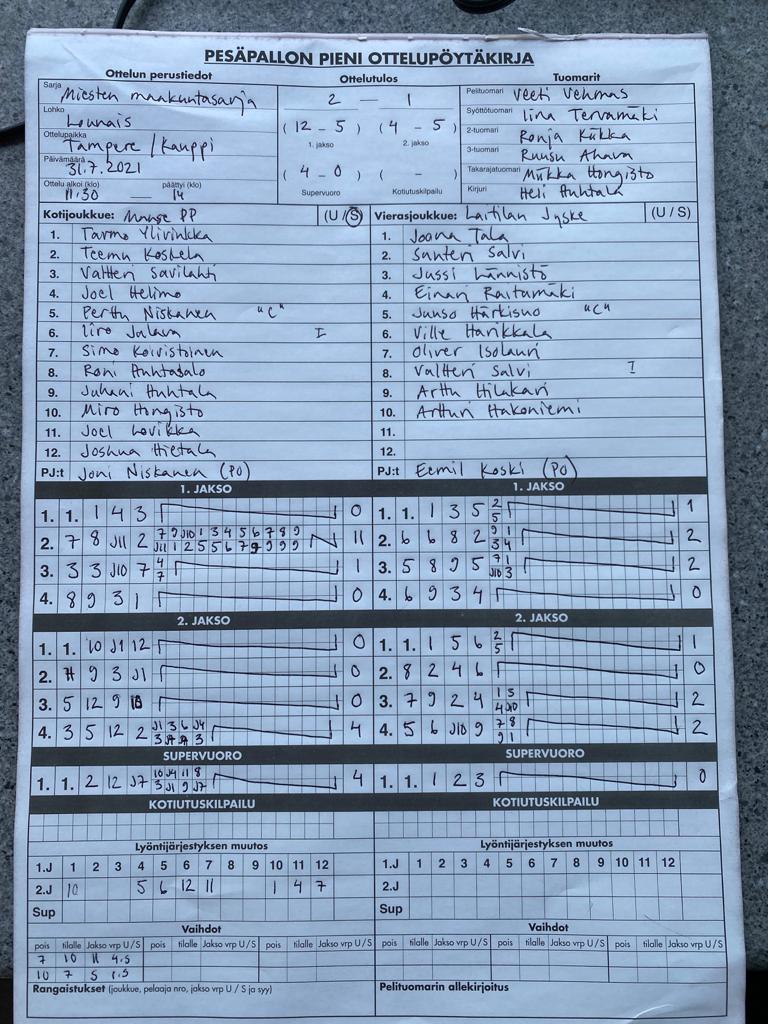 PESÄPALLON PIENI OTTELUPÖYTÄKIRJA
Ottelun perustiedot
Sarja Miesten maakuntasarja
Lohko Lounais
Ottelupaikka Tampere / Kauppi
Päivämäärä 31.7.2021
Ottelu alkoi (klo) 11.30 — päättyi (klo) 14
Ottelutulos
2 — 1
( 12 – 5 ) ( 4 – 5 )
1. jakso 2. jakso
( 4 – 0 ) ( – )
Supervuoro Kotiutuskilpailu
Tuomarit
Pelituomari Veeti Vehmas
Syöttötuomari Iina Tervamäki
2-tuomari Ronja Kukka
3-tuomari Ruusu Ahava
Takarajatuomari Miikka Hongisto
Kirjuri Heli Huhtala
Kotijoukkue: Manse PP (U / S)
1. Tarmo Ylivinkka
2. Teemu Koskela
3. Valtteri Savilahti
4. Joel Helimo
5. Perttu Niskanen "C"
6. Iiro Jalava I
7. Simo Koivistoinen
8. Roni Huhtasalo
9. Juhani Huhtala
10. Miro Hongisto
11. Joel Lovikka
12. Joshua Hietala
PJ:t Joni Niskanen (PO)
Vierasjoukkue: Laitilan Jyske (U / S)
1. Joona Tala
2. Santeri Salvi
3. Jussi Lännistö
4. Einari Raitamäki
5. Juuso Härkisuo "C"
6. Ville Harikkala
7. Oliver Isolauri
8. Valtteri Salvi I
9. Arttu Hilakari
10. Artturi Hakoniemi
11.
12.
PJ:t Eemil Koski (PO)
1. JAKSO
1. 1. 1 4 3 0
2. 7 8 J11 2 7 9 J10 1 3 4 5 6 7 8 9 11
J11 1 2 5 5 6 7 9 9 9 9
3. 3 3 J10 7 4 1
7
4. 8 9 3 1 0
1. JAKSO
1. 1. 1 3 5 2 1
5
2. 6 6 8 2 9 1 2
3 4
3. 5 8 9 5 7 1 2
J10 3
4. 6 9 3 4 0
2. JAKSO
1. 1. 10 J1 12 0
2. 9 3 J1 0
3. 5 12 9 0
4. 3 5 12 2 J1 3 6 J4 4
3 3
2. JAKSO
1. 1. 1 5 6 2 1
5
2. 8 2 4 6 0
3. 7 9 2 4 1 3 2
4 J10
4. 5 6 J10 9 7 8 2
9 1
SUPERVUORO
1. 1. 2 12 J7 10 J4 11 8 4
3 J1 9 J7
SUPERVUORO
1. 1. 1 2 3 0
KOTIUTUSKILPAILU
Lyöntijärjestyksen muutos
1.J 1 2 3 4 5 6 7 8 9 10 11 12
2.J 10 5 6 12 11 1 4 7
Sup
KOTIUTUSKILPAILU
Lyöntijärjestyksen muutos
1.J 1 2 3 4 5 6 7 8 9 10 11 12
2.J
Sup
Vaihdot
pois tilalle Jakso vrp U / S pois tilalle Jakso vrp U / S pois tilalle Jakso vrp U / S
7 10 II 4.S
10 7 S 1.S
Rangaistukset (joukkue, pelaaja nro, jakso vrp U / S ja syy)
Vaihdot
pois tilalle Jakso vrp U / S pois tilalle Jakso vrp U / S pois tilalle Jakso vrp U / S
Pelituomarin allekirjoitus